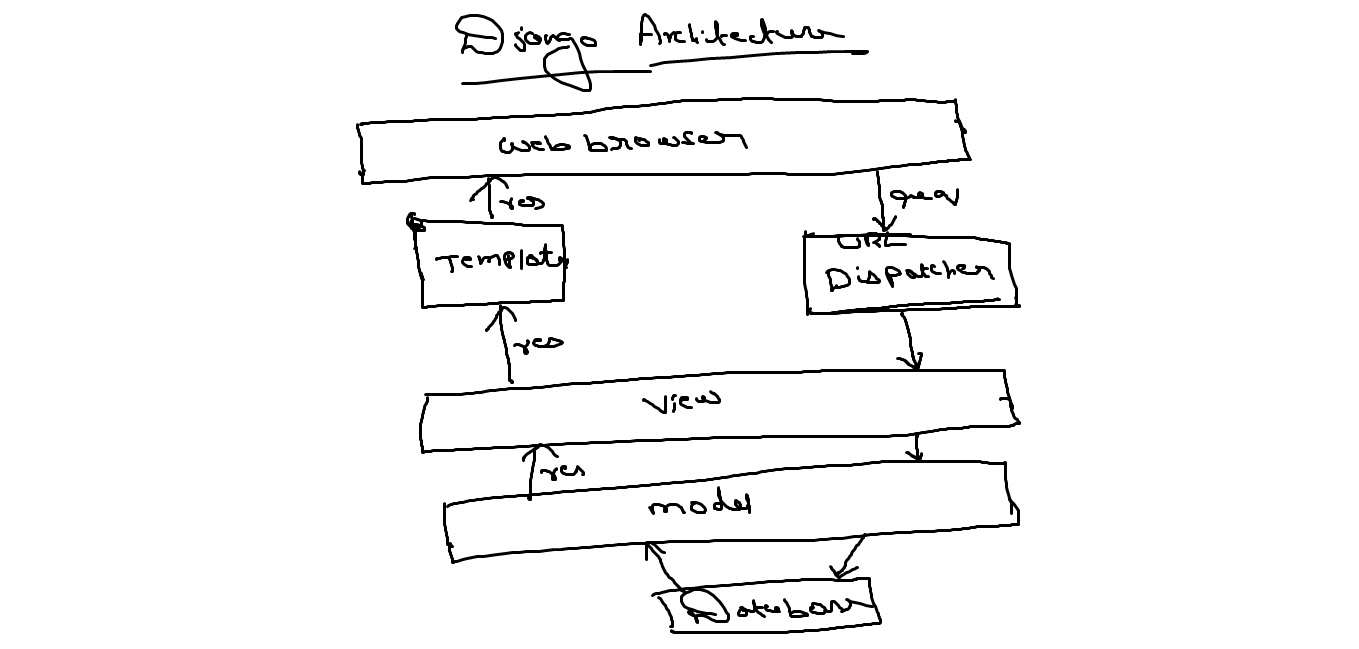 Django Architecture
web browser
res
req
Template
URL
Dispatcher
res
View
res
model
Database